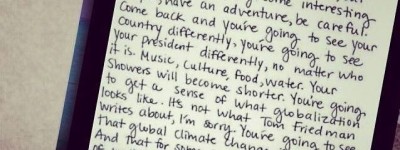 some interesting
have an adventure, be careful.
Come back and you're going to see your
country differently, you're going to see
your president differently, no matter who
it is. Music, culture, food, water. Your
showers will become shorter. You're going
to get a sense of what globalization
looks like. It's not what Tom Friedman
writes about, I'm sorry. You're going to see
that global climate change
And that for some